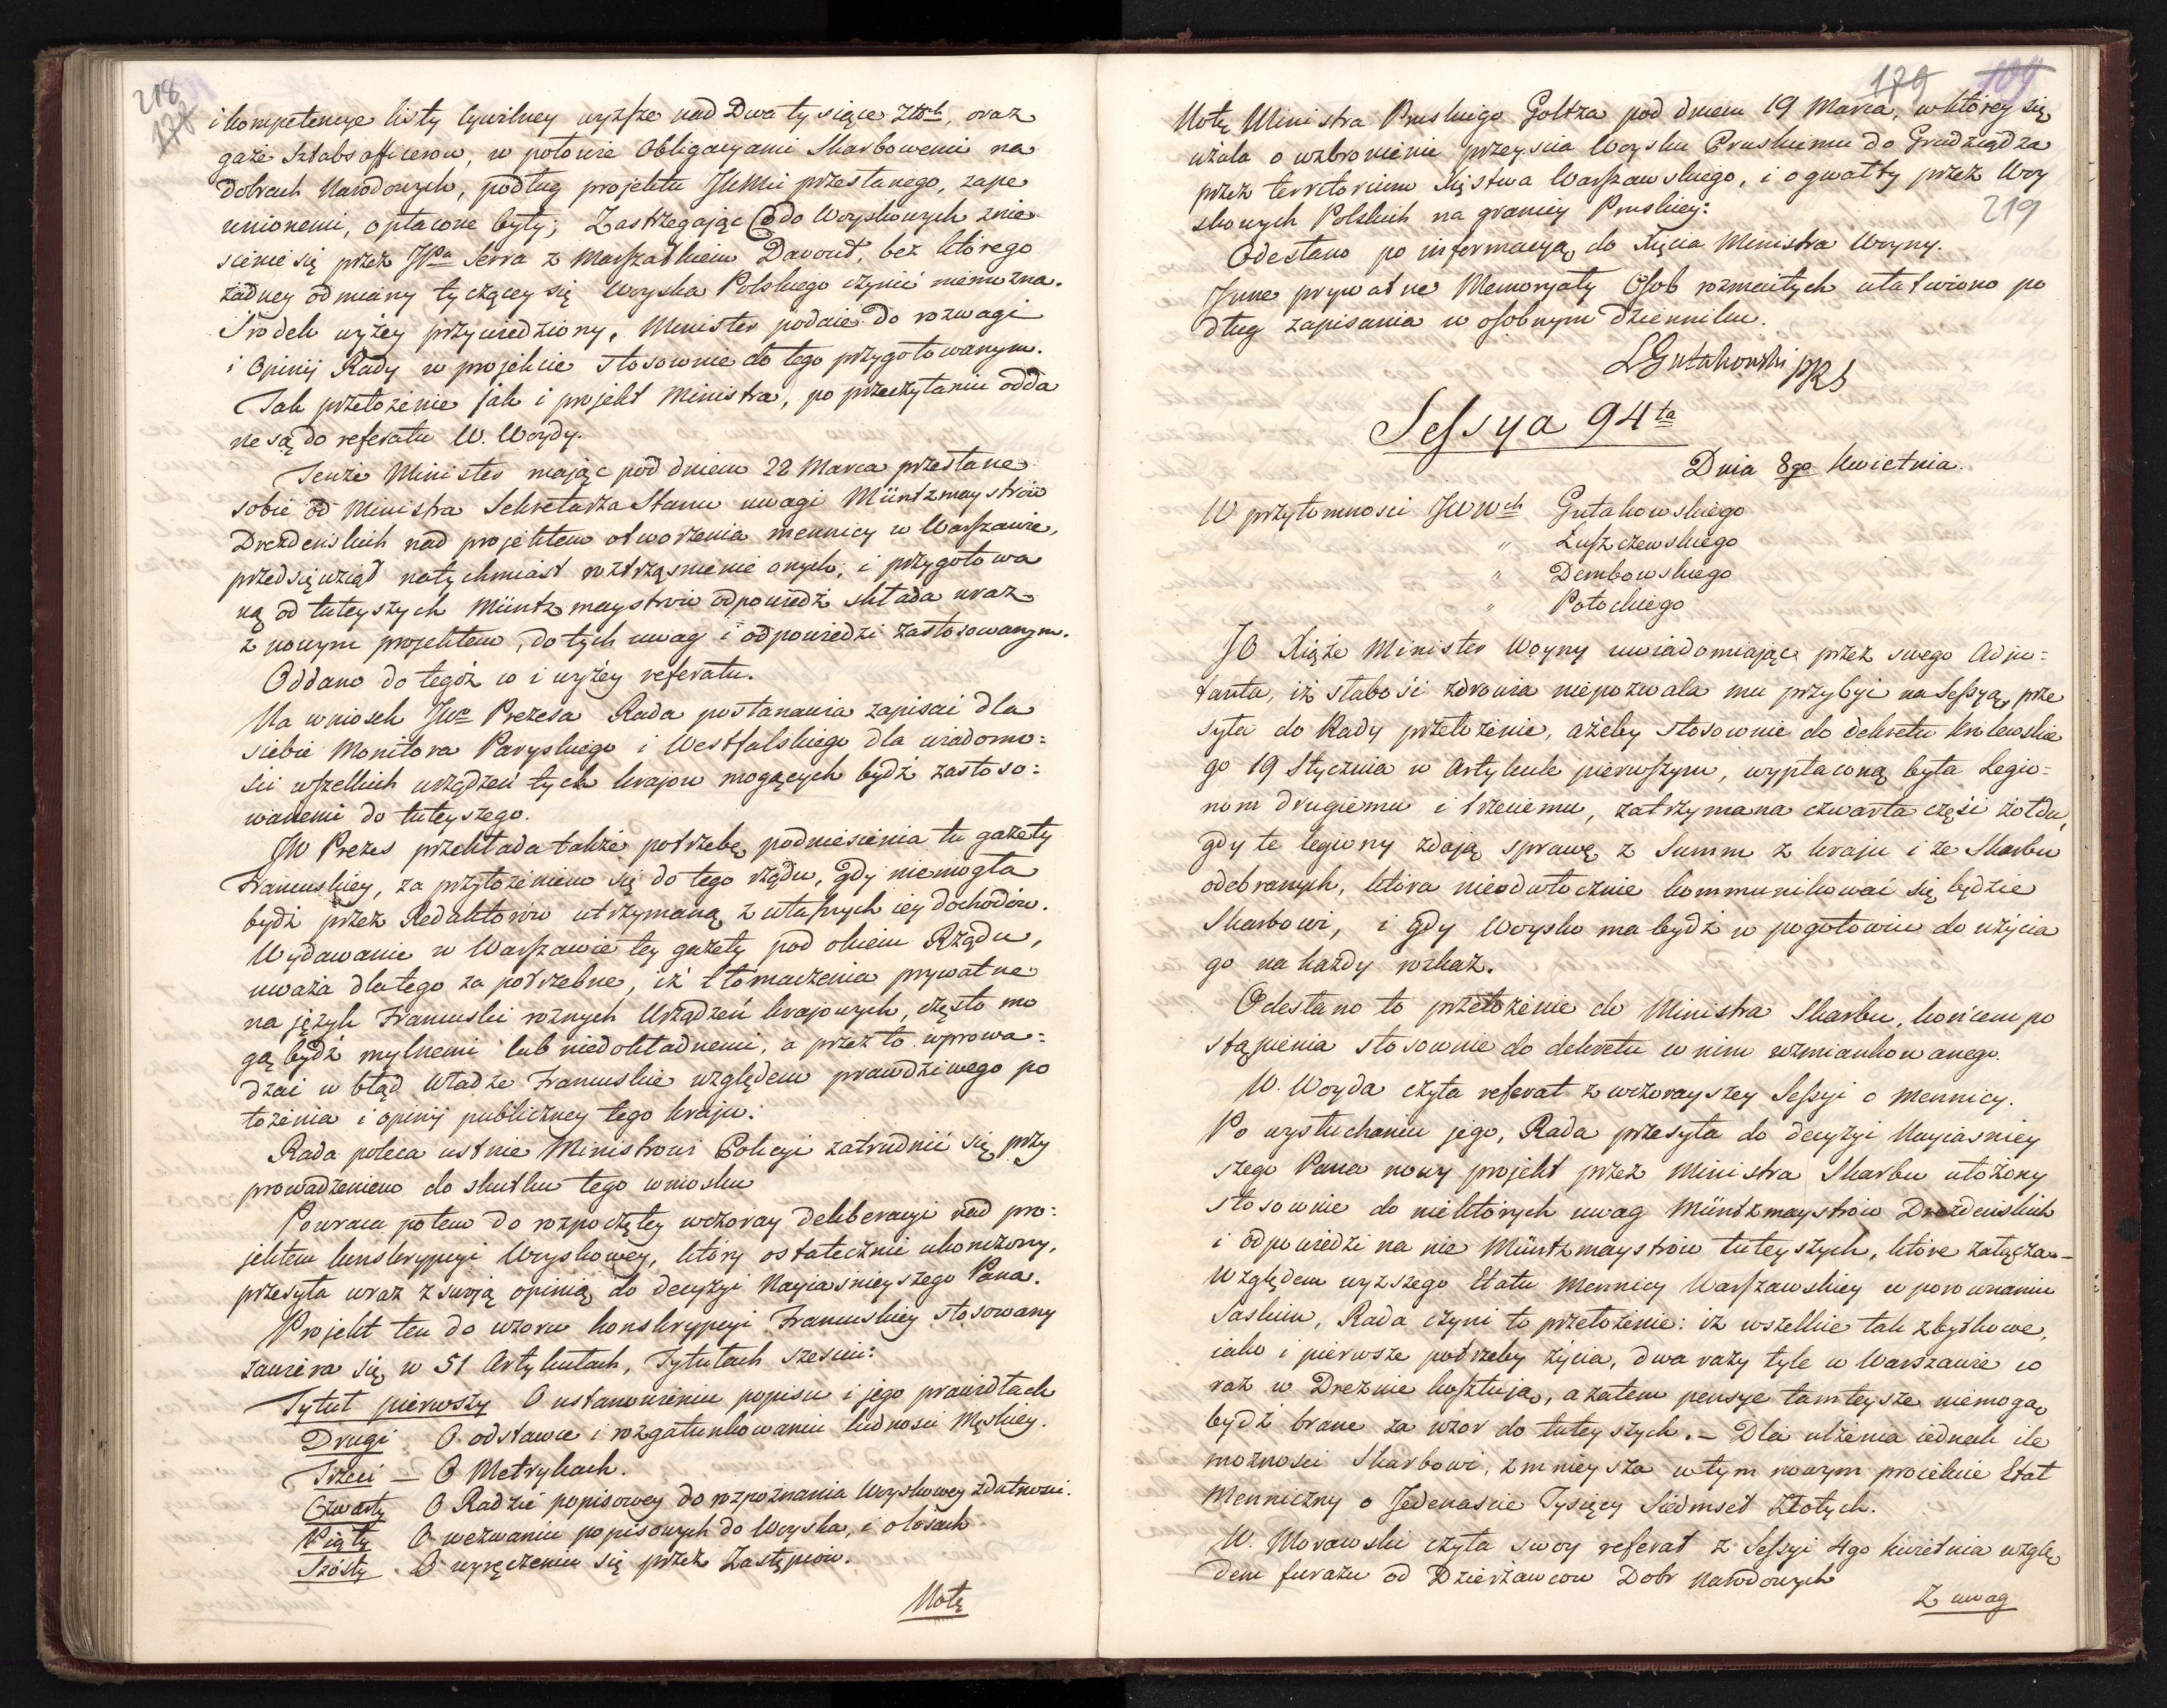 218
178
i kompetencye listy Cywilney wyższe nad Dwa tysiące Złoch, oraz
gaże Sztabsofficerow, w połowie Obligacyami Skarbowemi na
dobrach Narodowych, podług projektu JWMu przesłanego, zape
wnionemi, opłacone były; Zastrzegając Co do Woyskowych znie
sienie się przez JPa Serra z Marszałkiem Davout, bez którego
żadney odmiany tyczącey się Woyska Polskiego czynić niemożna.
Srodek wyżey przywiedziony, Minister podaie do rozwagi
i Opinij Rady w projekcie stosownie do tego przygotowanym.
Tak przełożenie jak i projekt Ministra, po przeczytaniu odda
ne są do referatu W. Woydy.
Tenże Minister mając pod dniem 22 Marca przesłane
sobie od Ministra Sekretarza Stanu uwagi Müntzmaystrów
Drezdenskich nad projektem otworzenia mennicy w Warszawie,
przedsięwziął natychmiast roztrząsnienie onych; i przygotowa
ną od tuteyszych Müntzmaystrów odpowiedź składa wraz
z nowym projektem, do tych uwag i odpowiedzi zastosowanym.
Oddano do tegoż co i wyżey referatu.
Na wniosek JWo Prezesa Rada postanawia zapisać dla
siebie Monitora Paryskiego i Westfalskiego dla wiadomo=
ści wszelkich urządzeń tych krajow mogących bydź zastoso=
wanemi do tuteyszego.
JW Prezes przekłada także potrzebę podniesienia tu gazety
Francuskiey, za przyłożeniem się do tego rządu, gdy niemogła
bydź przez Redaktorów utrzymaną z własnych iey dochodów.
Wydawanie w Warszawie tey gazety pod okiem Rządu,
uważa dlatego za potrzebne, iż tłomaczenia prywatne
na język Francuski roznych Urządzeń krajowych, często mo
gą bydź mylnemi lub niedokładnemi, a przez to wprowa=
dzać w błąd Władze Francuskie względem prawdziwego po
łożenia i opinij publiczney tego kraju.
Rada poleca ustnie Ministrowi Policyi zatrudnić się przy
prowadzeniem do skutku tego wniosku
Powraca potem do rozpoczętey wczoray deliberacyi nad pro=
jektem konskrypcyi Woyskowey, który ostatecznie ukończony,
przesyła wraz z swoją opinią do decyzyi Nayiaśnieyszego Pana.
Projekt ten do wzoru konskrypcyi Francuskiey stosowany
zawiera się w 51 Artykułach, Tytułach sześciu:
Tytuł pierwszy O ustanowieniu popisu i jego prawidłach
Drugi O odstawce i rozgatunkowaniu ludnosci Męskiey.
Trzeci – O Metrykach.
Czwarty O Radzie popisowey do rozpoznania Woyskowey zdatnosci.
Piąty O wezwaniu popisowych do Woyska, i olosach
Szósty O wyręczeniu się przez Zastępców.
Notę
179 109
219
Notę Ministra Pruskiego Goltza pod dniem 19 Marca, w którey się
użala o wzbronienie przeyscia Woysku Pruskiemu do Grudziądza
przez territorium Xięstwa Warszawskiego, i o gwałty przez Woy
skowych Polskich na granicy Pruskiey:
Odesłano po informacyą do Xięcia Ministra Woyny.
Inne prywatne Memoryały Osob rozmaitych ułatwiono po
dług zapisania w osobnym Dzienniku.
LGutakowski PRS
Sessya 94ta
Dnia 8go Kwietnia.
W przytomnosci JWWch Gutakowskiego
" Łuszczewskiego
" Dembowskiego
" Potockiego
JO Xiąże Minister Woyny uwiadomiając przez swego Adju=
tanta, iż słabość zdrowia niepozwala mu przybyć na Sessyą, prze
syła do Rady przełożenie, ażeby stosownie do dekretu krolewskie
go 19 Stycznia w Artykule pierwszym, wypłaconą była Legio=
nom drugiemu i trzeciemu, zatrzymana czwarta część żołdu,
gdy te legiony zdają sprawę z Summ z kraju i ze Skarbu
odebranych, która nieodwłocznie kommunikować się będzie
Skarbowi, i gdy Woysko ma bydź w pogotowiu do użycia
go na każdy rozkaz.
Odesłano to przełożenie do Ministra Skarbu, końcem po
stąpienia stosownie do dekretu w nim wzmiankowanego.
W. Woyda czyta referat z wczorayszey Sessyi o mennicy.
Po wysłuchaniu jego, Rada przesyła do decyzyi Nayiasniey
szego Pana nowy projekt przez Ministra Skarbu ułożony
stosownie do niektórych uwag Müntzmaystrów Drezdeńskich
i odpowiedzi na nie Müntzmaystrów tuteyszych, które załącza.–
Względem wyzszego Etatu Mennicy Warszawskiey w porownaniu
Saskim, Rada czyni to przełożenie: iż wszelkie tak zbytkowe,
iako i pierwsze potrzeby życia, dwa razy tyle w Warszawie co
raz w Dreznie kosztują, a zatem pensye tamteysze niemogą
bydź brane za wzor do tuteyszych.– Dla ulżenia iednak ile
możnosci Skarbowi, zmnieysza w tym nowym proiekcie Etat
Menniczny o Jedenascie Tysięcy Siedmset Złotych.
W. Morawski czyta swoy referat z Sessyi 4go Kwietnia wzglę
dem furażu od Dzierżawcow Dobr Narodowych
Z uwag